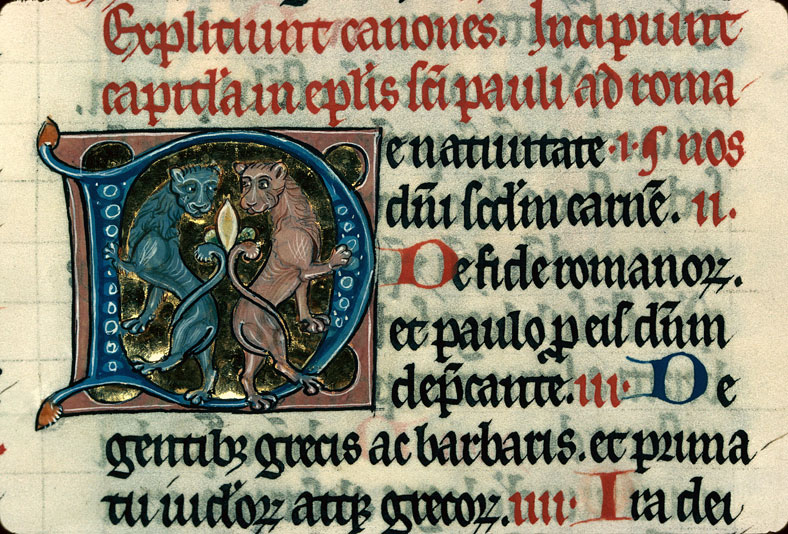 Expliciunt canones. Incipiunt
capitl'a in ep̄lis sc̄i pauli ad roma
De natiuitate ·i· ſ nos
dn̄i sc̄dm carnē. ii.
De fide romanoꝝ.
et paulo ꝓ eis dn̄m
dep̄cante. iii· De
gentibꝫ grecis ac barbaris. et prima
tu iudeoꝝ atqꝫ grecoꝝ. iiii· Ira dei